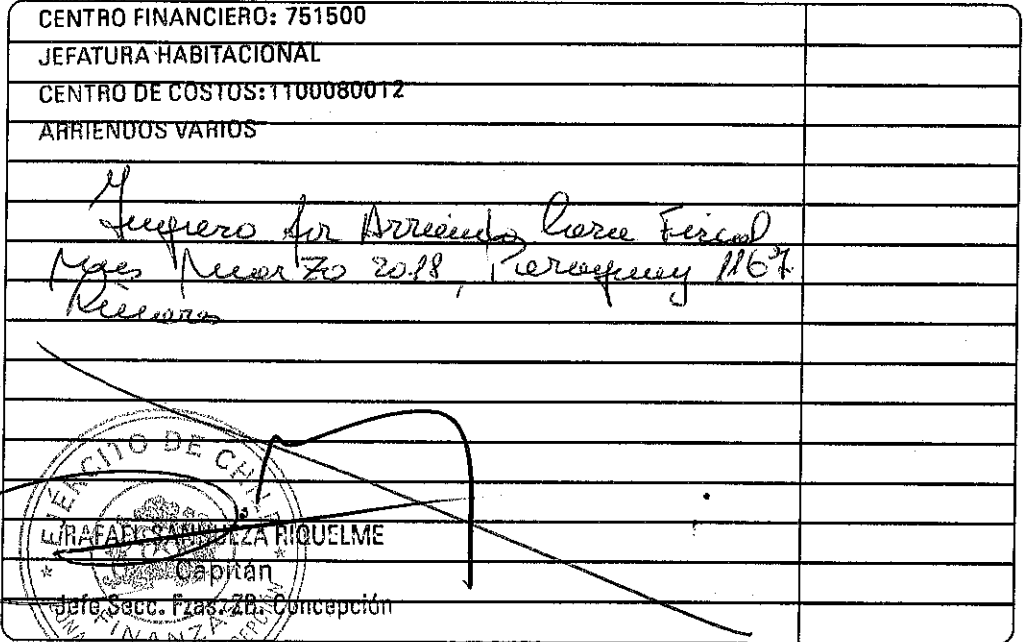 CENTRO FINANCIERO: 751500
JEFATURA HABITACIONAL
CENTRO DE COSTOS: 1100080012
ARRIENDOS VARIOS
por Arriendo Fiscal
Marzo 2018, Paraguay 1167
EJÉRCITO DE CHILE
RAFAEL SANHUEZA RIQUELME
Capitán
Jefe Secc. Fzas. ZB. Concepción
FINANZAS